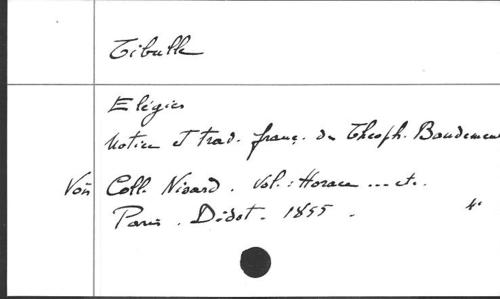 Tibulle
Elégies
Notice et trad. franç. de Théoph. Baudement
Voir Coll. Nisard. Vol.: Horace ... etc.
Paris. Didot. 1855. 4°